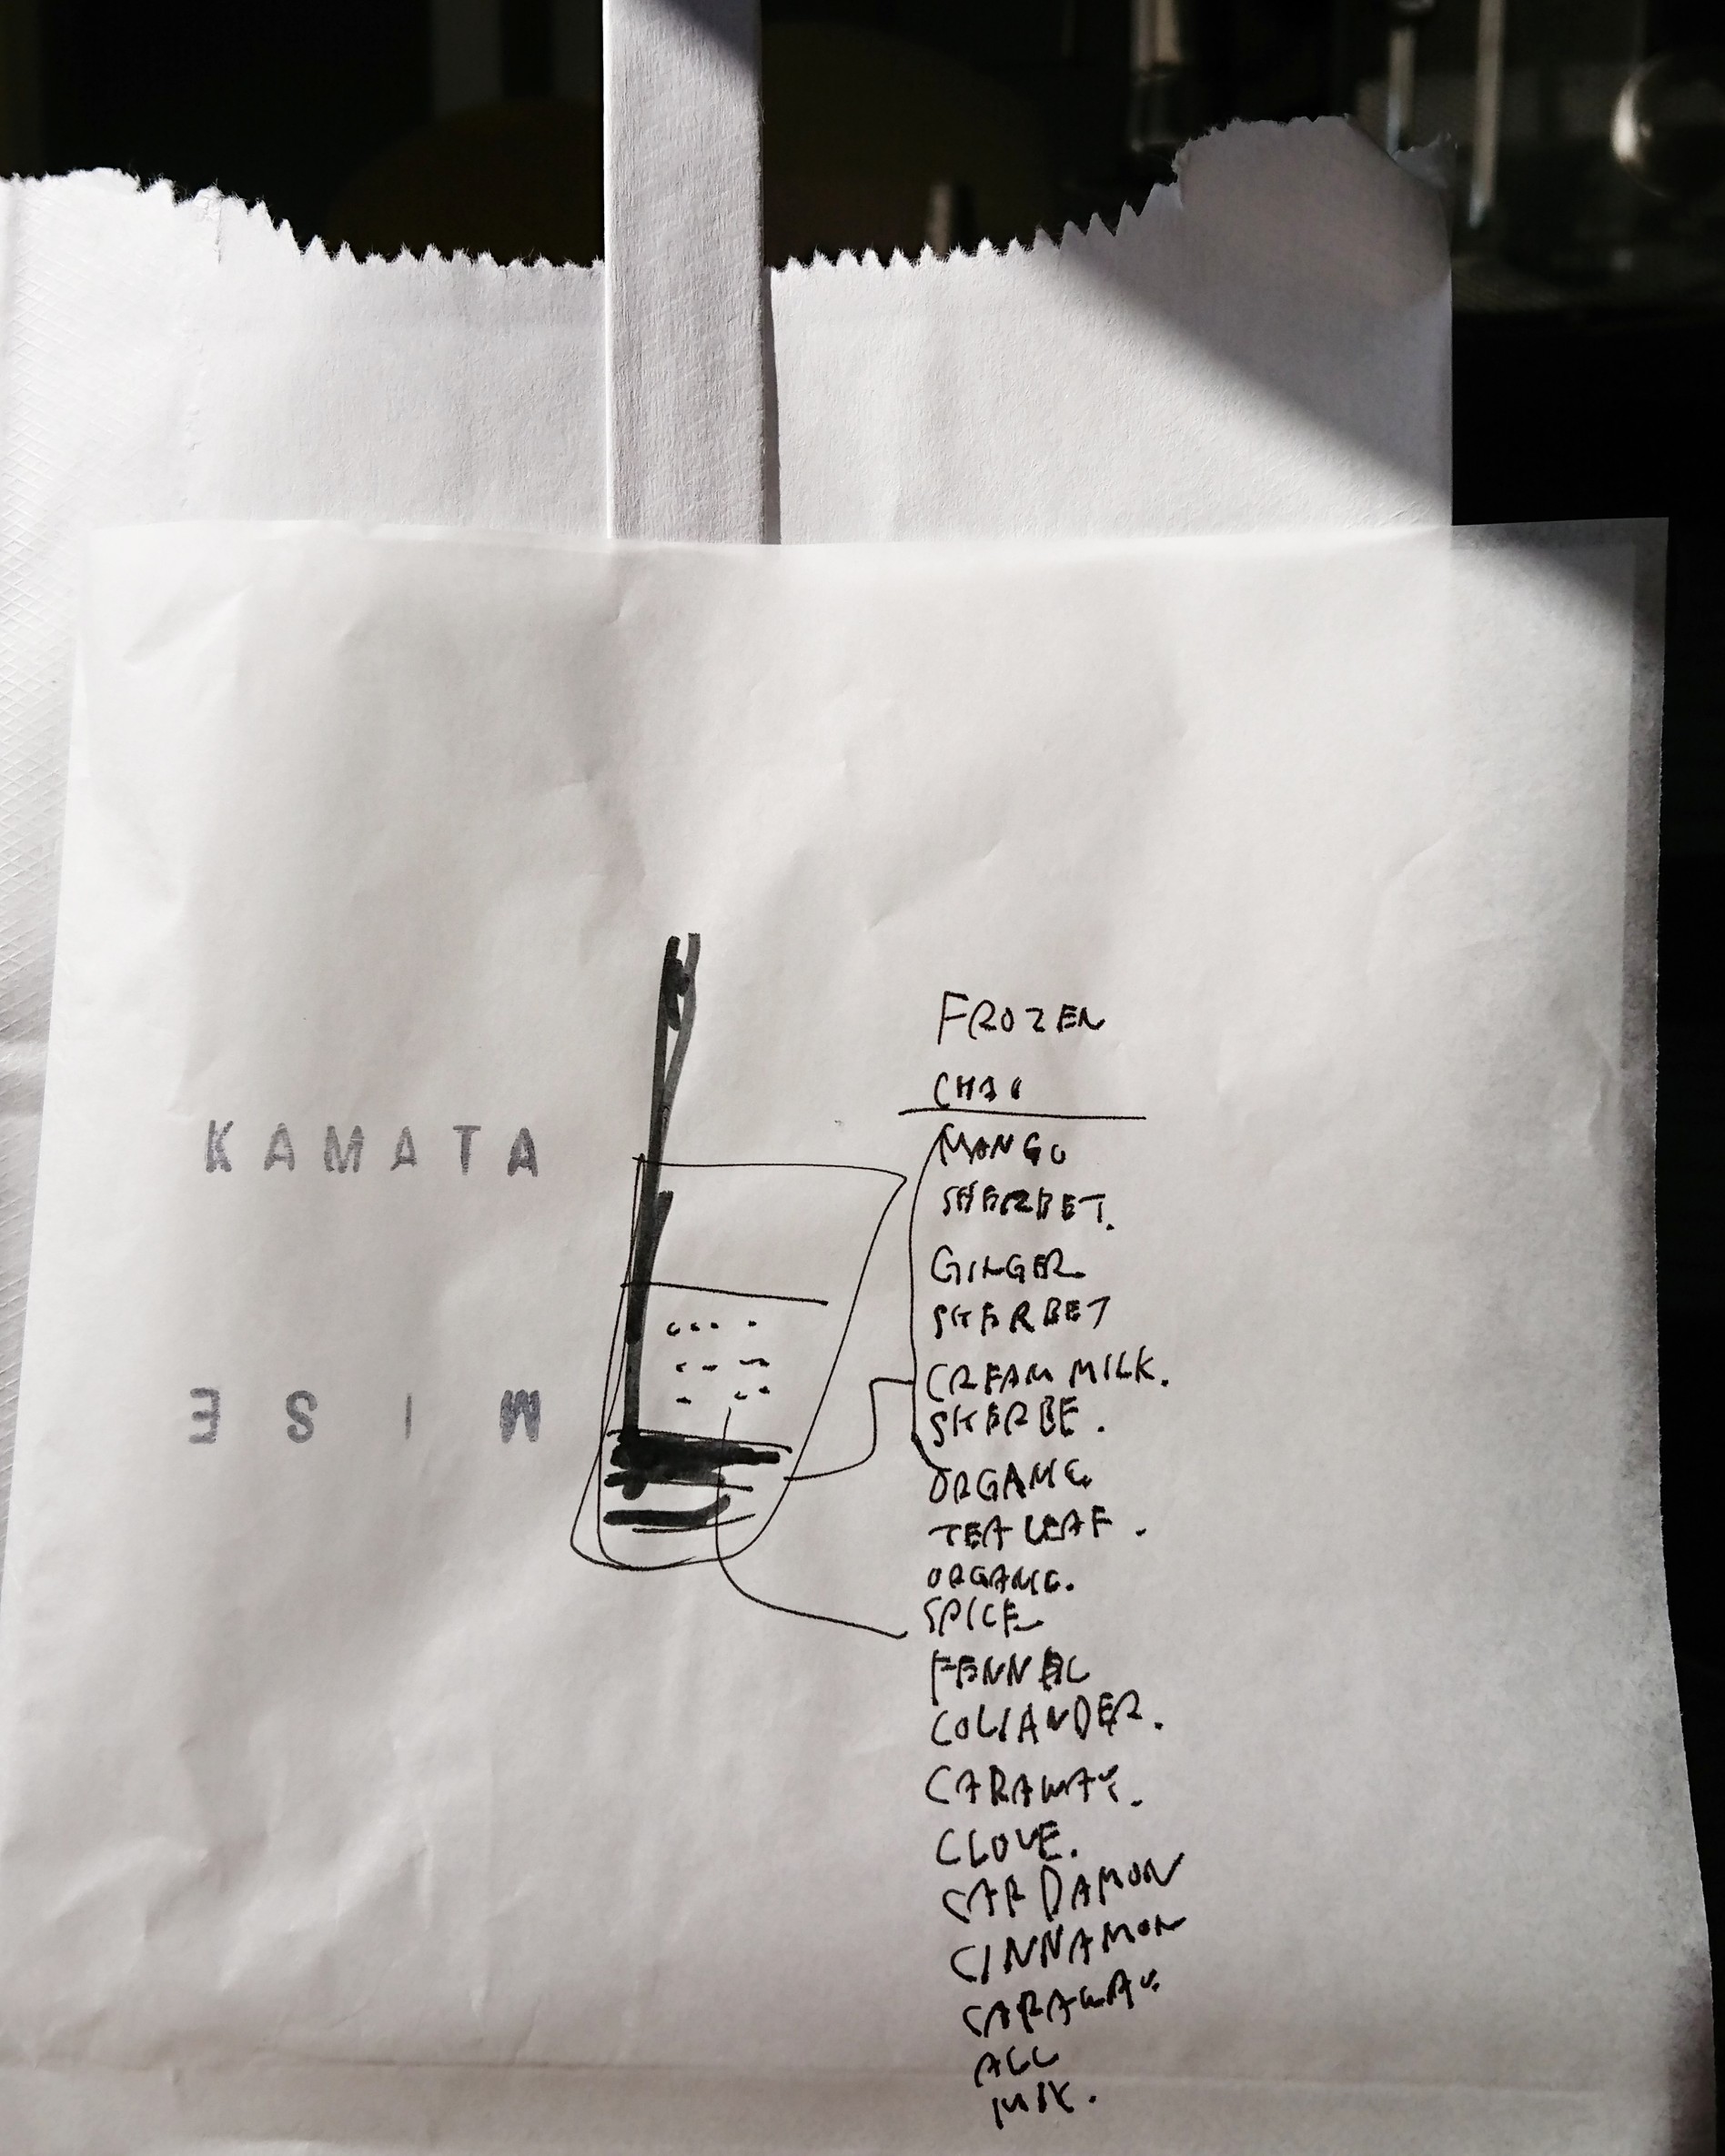 KAMATA
MISE
FROZEN
CHAI
MANGO
SHERBET.
GINGER
SHERBET
CREAM MILK.
SHERBE.
ORGANIC
TEA LEAF.
ORGANIC.
SPICE
FENNEL
COLIANDER.
CARAWAY.
CLOVE.
CARDAMON
CINNAMON
CARAWAY
ALL
MIX.